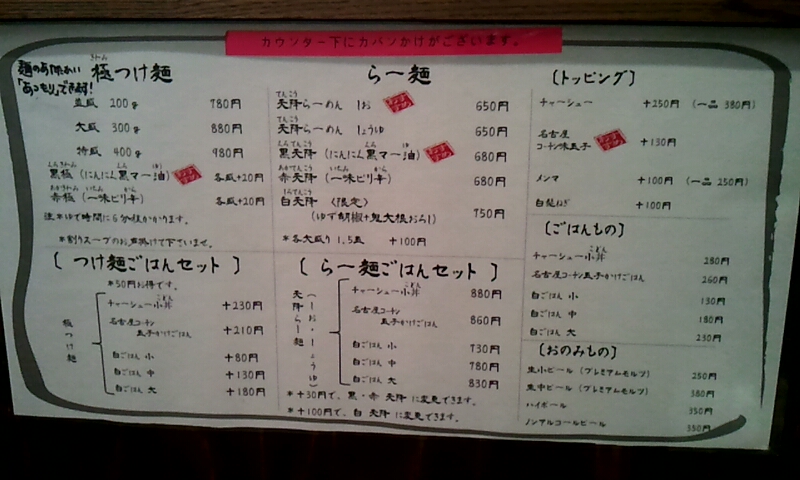 カウンター下にカバンかけがございます。
極つけ麺
きわみ
並盛 200g 780円
大盛 300g 880円
特盛 400g 980円
黒極(にんにん黒マー油) 各盛+20円
赤極(一味ピリ辛) 各盛+20円
注※ゆで時間に6分程かかります。
*割りスープのお声掛け下さいませ。
らー麺
てんこう
天降らーめん しお 650円
てんこう
天降らーめん しょうゆ 650円
黒天降(にんにん黒マー油) 680円
赤天降(一味ピリ辛) 680円
白天降〈限定〉
(ゆず胡椒+鬼大根おろし) 750円
*各大盛り 1.5玉 +100円
〔トッピング〕
チャーシュー +250円 (一品 380円)
名古屋
コーチン味玉子 +130円
メンマ +100円 (一品 250円)
白髪ねぎ +100円
〔ごはんもの〕
チャーシュー小丼 280円
名古屋コーチン玉子かけごはん 260円
白ごはん 小 130円
白ごはん 中 180円
白ごはん 大 230円
〔おのみもの〕
生小ビール(プレミアムモルツ) 250円
生中ビール(プレミアムモルツ) 380円
ハイボール 350円
ノンアルコールビール 350円
〔つけ麺ごはんセット〕
*50円お得です。
極つけ麺
チャーシュー小丼 +230円
名古屋コーチン
玉子かけごはん +210円
白ごはん 小 +80円
白ごはん 中 +130円
白ごはん 大 +180円
〔らー麺ごはんセット〕
天降らー麺
(しお・しょうゆ)
チャーシュー小丼 880円
名古屋コーチン
玉子かけごはん 860円
白ごはん 小 730円
白ごはん 中 780円
白ごはん 大 830円
*+30円で、黒・赤 天降 に変更できます。
*+100円で、白 天降 に変更できます。